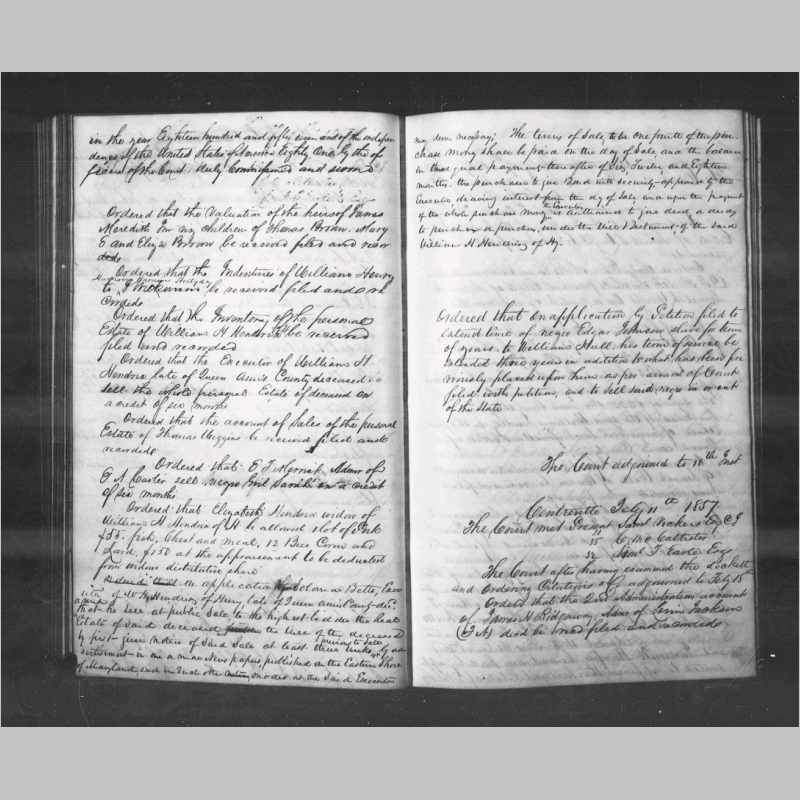 in the year Eighteen hundred and fifty seven and of the independ
dence of the United States of America Eighty One by the of
peace of the Court duly Commissioned and sworn
Ordered that the Valuation of the heirs of James
Meredith for my children of Thomas Brown Mary
E and Eliza Brown be received filed and recor
ded
Ordered that the Indentures of William Henry
to J Wilkinson be received filed and re
corded
Ordered that the Inventory of the personal
Estate of William H Hendrix be received
filed and recorded
Ordered that the Executor of William H
Hendrix late of Queen Ann's County deceased
sell the whole personal Estate of deceased on
a credit of six months
Ordered that the account of Sales of the personal
Estate of Thomas Wiggins be received filed and
recorded
Ordered that E T Admr of
G A Carter sell negro girl Sarah on a credit
of six months
Ordered that Elizabeth Hendrix widow of
William H Hendrix of H be allowed a lot of Pork
$55. fish, Wheat and meal, 12 Bus Corn and
Lard, $50 at the appraisement to be deducted
from widows distributive share
on application of as Betts, Exe
cutor of W H Hendrix, of Henry, late of Queen Ann's County decd
that he sell at public Sale to the highest bidder the Real
Estate of Said deceased the Use of the deceased
by first given notice of Said Sale at least three weeks previous to sale by ad
vertisement in one or more News papers, published on the Eastern Shore
of Maryland, and in such other modes as the Said Executor
may deem necessary; The terms of Sale to be one fourth of the pur-
chase Money Shall be paid on the day of Sale and the balance
in three equal payments thereafter of Six, Twelve, and Eighteen
months, the purchaser to give Bond with security approved by the
Executor drawing interest from the day of Sale, and upon the payment
of the whole purchase Money is authorised to give deed, or deeds
to purchaser or purchasers, under the Will & Testament of the Said
William H Hendrix of Hy.
Ordered that on application by Petition filed to
extend time of negro Edgar Johnson slave for term
of years, to William Hull, his term of service be
extended three years in addition to what has been for
merly placed upon him as per account of Court
filed with petition, and to sell said negro in or out
of the State
The Court adjourned to 11th Inst
Centreville Feby 11th 1857
The Court met Present Saml Esq C J
C McCallister
Saml T Earle Esq
The Court after having examined the Docket
and Ordering Citations &c adjourned to Feby 18th
Ordered that the 2nd Administration account
of James H Ridgaway Admr of Jackson
of A died be recd filed and recorded